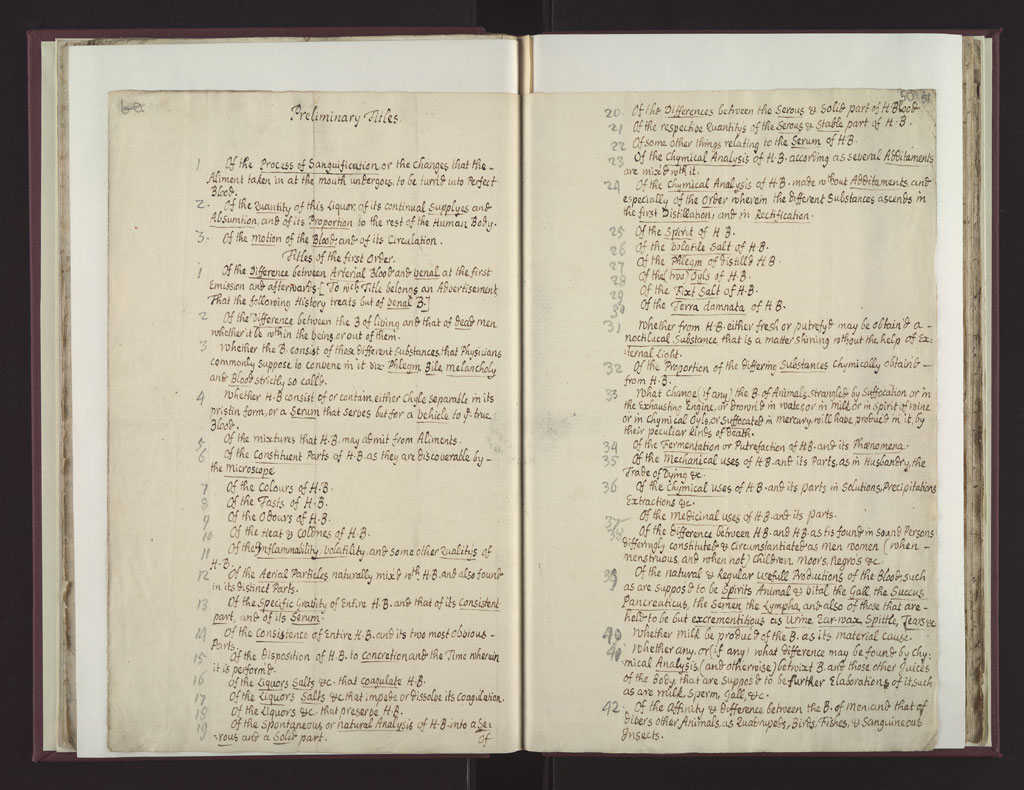 60
Preliminary Titles.
1 Of the Process of Sanguification or the Changes that the
Aliment taken in at the mouth undergoes, to be turn'd into Perfect
Blood.
2. Of the Quantity of this Liquor, of its continual Supplyes and
Absumtion, and of its Proportion to the rest of the Human Body.
3. Of the motion of the Blood; and of its Circulation.
Titles of the first Order.
1 Of the Difference between Arterial Blood and venal, at the first
Emission and afterwards. [To wch Title belongs an Advertisement,
That the following History treats but of venal B.]
2 Of the Difference between the B of living and that of dead men
whether it be within the veins, or out of them.
3 Whether the B. consist of those different substances, that Physicians
commonly suppose to convene in it viz. Phlegm Bile, melancholy
and Blood strictly so call'd.
4 Whether H·B consist of or contain, either Chyle separable in its
pristin form, or a Serum that serves but for a Vehicle to ye true
Blood.
5 Of the mixtures that H·B. may admit from Aliments.
6 Of the Constituent Parts of H·B. as they are discoverable by
the microscope
7 Of the Colours of H·B.
8 Of the Tasts of H·B.
9 Of the Odours of H·B.
10 Of the Heat & Coldnes of H·B.
11 Of the Inflammability Volatility, and some other Qualitys of
H·B.
12 Of the Aerial Particles naturally mix'd wth H·B. and also found
in its distinct Parts.
13 Of the Specific Gravity of Entire H·B. and that of its Consistent
part, and of its Serum.
14 Of the Consistence of Entire H·B. and its two most obvious
Parts.
15 Of the Disposition of H·B. to Concretion and the Time wherein
it is perform'd.
16 Of the Liquors Salts &c. that Coagulate H·B.
17 Of the Liquors Salts &c. that impede or dissolve its Coagulation.
18 Of the Liquors &c. that preserve H·B.
19 Of the Spontaneous or natural Analysis of H·B. into a Se-
rous and a Solid part.
Of
20. Of the Differences between the Serous & Solid part of H·Blood
21 Of the respective Quantitys of the Serous & Stable part of H·B.
22 Of some other things relating to the Serum of H·B.
23 Of the Chymical Analysis of H·B. according as several Additaments
are mix'd with it.
24 Of the Chymical Analysis of H·B. made without Additaments and
especially of the Order wherein the different Substances ascends in
the first Distillation; and in Rectification.
25 Of the Spirit of H·B.
26 Of the Volatile Salt of H·B.
27 Of the Phlegm of distill'd H·B.
28 Of the (two) Oyls of H·B.
29 Of the Fixt Salt of H·B.
30 Of the Terra damnata of H·B.
31 Whether from H·B. either fresh or putrefy'd may be obtain'd a
noctilucal Substance that is a matter shining without the help of Ex-
ternal Light.
32 Of the Proportion of the differing Substances Chymically obtain'd
from H·B.
33 What change (if any) the B. of Animals, strangled by Suffocation, or in
the Exhausting Engine, or drown'd in water, or in milk, or in Spirit of wine
or in Chymical Oyls, or Suffocated in mercury, will have produc'd in it, by
their peculiar kinds of death.
34 Of the Fermentation or Putrefaction of H·B. and its Phænomena.
35 Of the Mechanical uses of H·B. and its Parts, as in Husbandry, the
Trade of Dying &c.
36 Of the Chymical uses of H·B. and its parts in Solutions, Precipitations
Extractions &c.
37 Of the medicinal uses of H·B. and its parts.
38 Of the Difference between H·B. and H·B. as tis found in sound Persons
differingly constituted & Circumstantiated as men women (when
menstruous, and when not) Children, Moors, Negro's &c.
39 Of the natural & Regular usefull Productions of the Blood, such
as are suppos'd to be Spirits Animal & Vital the Gall, the Succus
Pancreaticus, the Semen, the Lympha, and also of those that are
held to be but excrementitious as Urine, Ear-wax, Spittle, Tears &c.
40 Whether milk be produc'd of the B. as its material cause.
41 Whether any, or (if any) what difference may be found by Chy-
mical Analysis (and otherwise) betwixt B. and those other Juices
of the Body, that are suppos'd to be further Elaborations of it, such
as are milk, Sperm, Gall, &c.
42. Of the Affinity & Difference between the B. of Men, and that of
divers other Animals, as Quadrupels, Birds, Fishes, & Sanguineous
Insects.